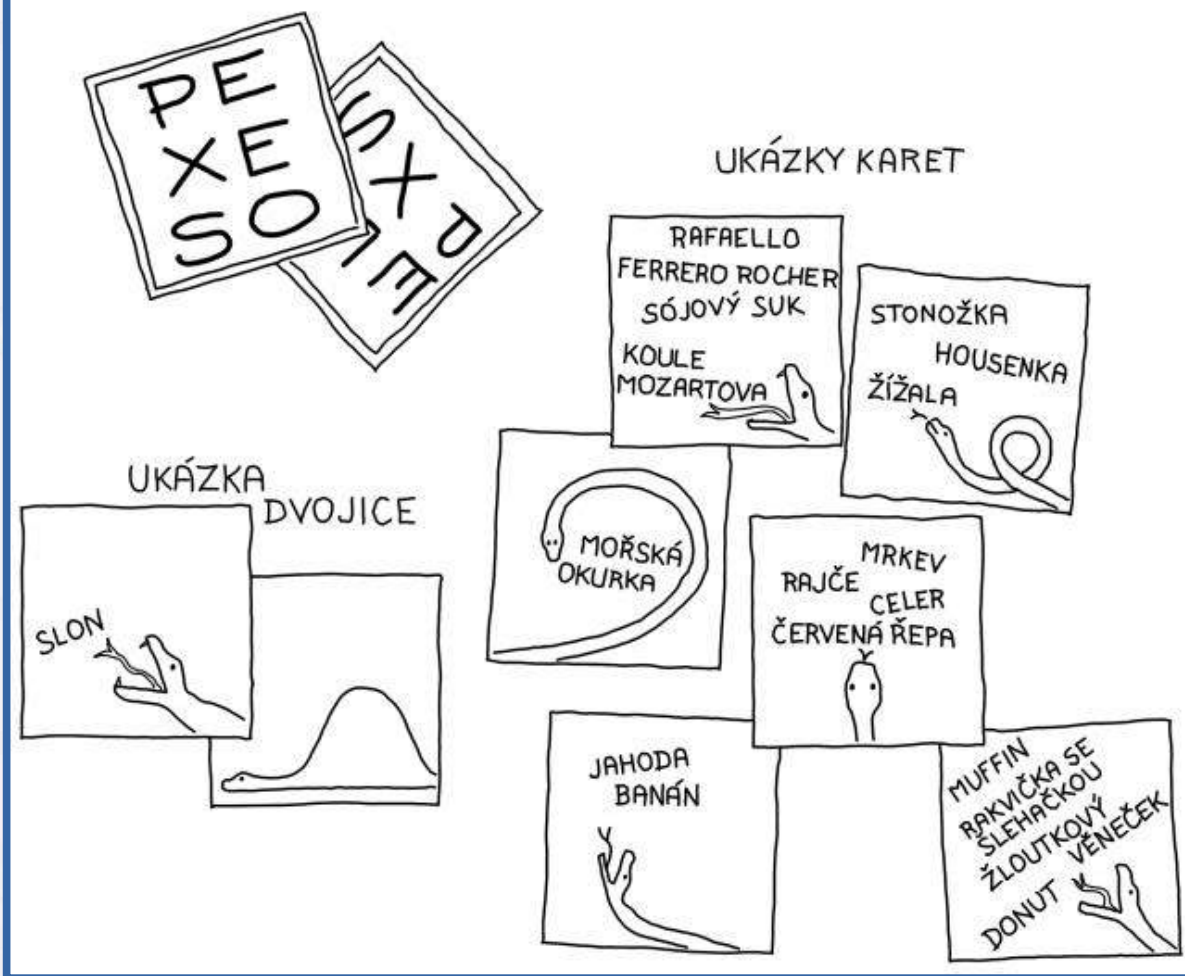 PE
XE
SO
PE
XE
S
UKÁZKY KARET
RAFAELLO
FERRERO ROCHER
SÓJOVÝ SUK
KOULE
MOZARTOVA
STONOŽKA
HOUSENKA
ŽÍŽALA
UKÁZKA
DVOJICE
SLON
MOŘSKÁ
OKURKA
MRKEV
RAJČE
CELER
ČERVENÁ ŘEPA
JAHODA
BANÁN
MUFFIN
RAKVIČKA SE
ŠLEHAČKOU
ŽLOUTKOVÝ
VĚNEČEK
DONUT